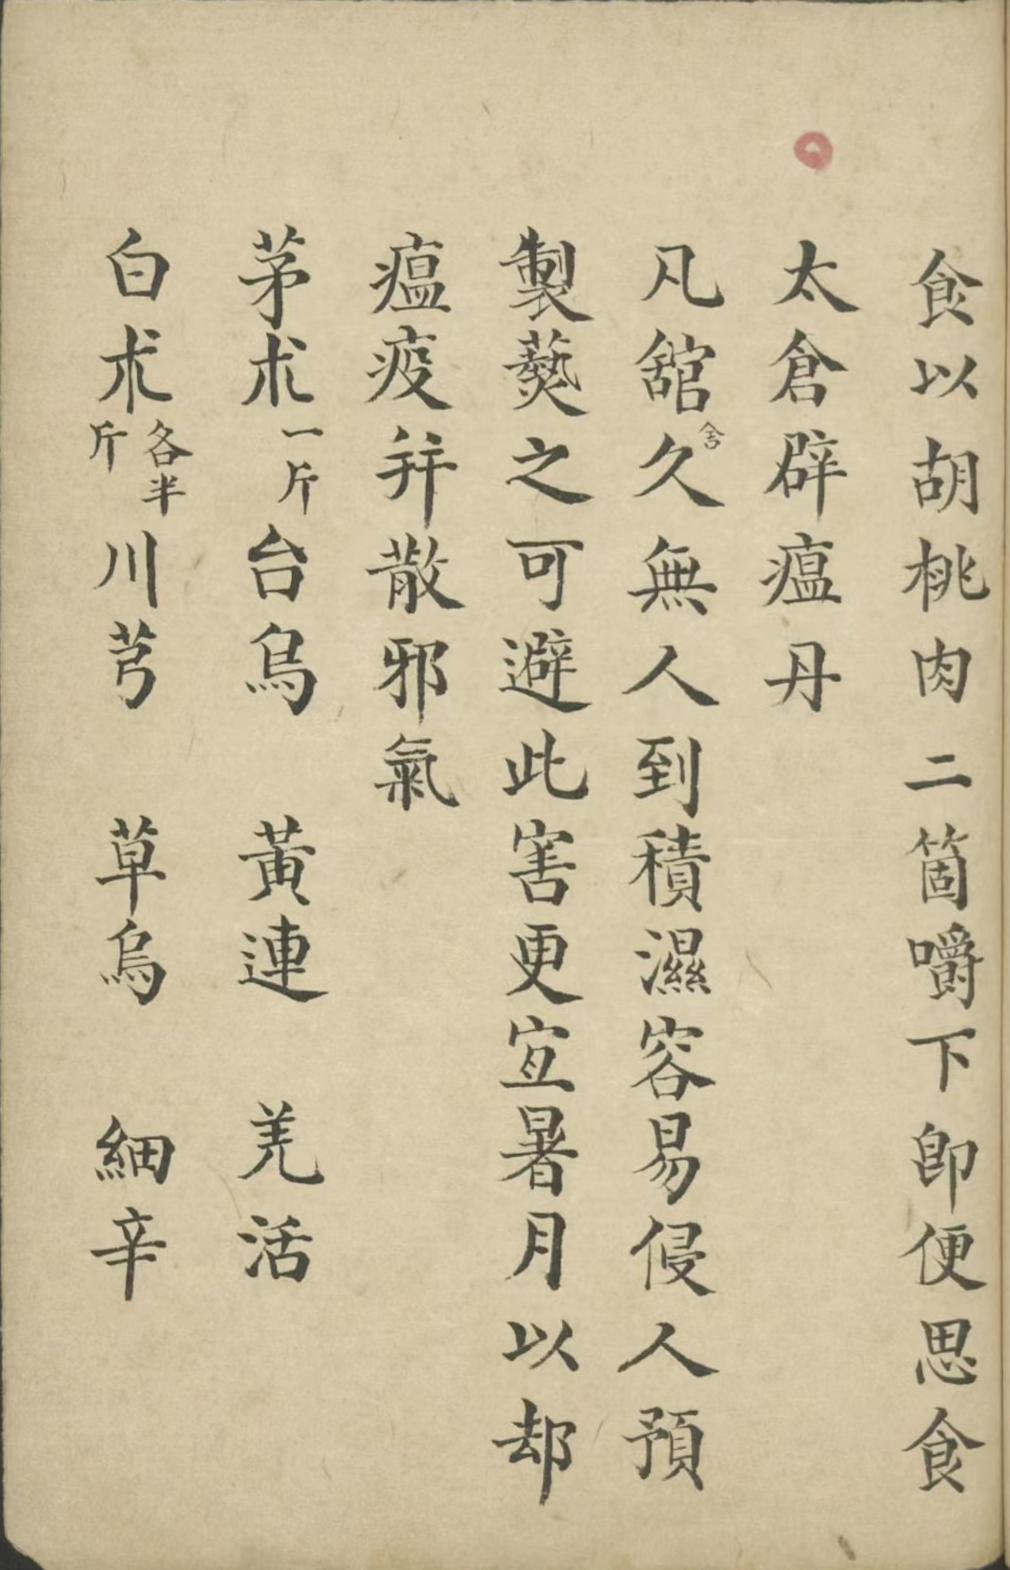 食以胡桃肉二箇嚼下即便思食
太倉辟瘟丹
凡舘舍久無人到積濕容易侵人預
製爇之可避此害更宜暑月以却
瘟疫并散邪氣
茅朮一斤台烏 黃連 羌活
白朮各半斤川芎 草烏 細辛